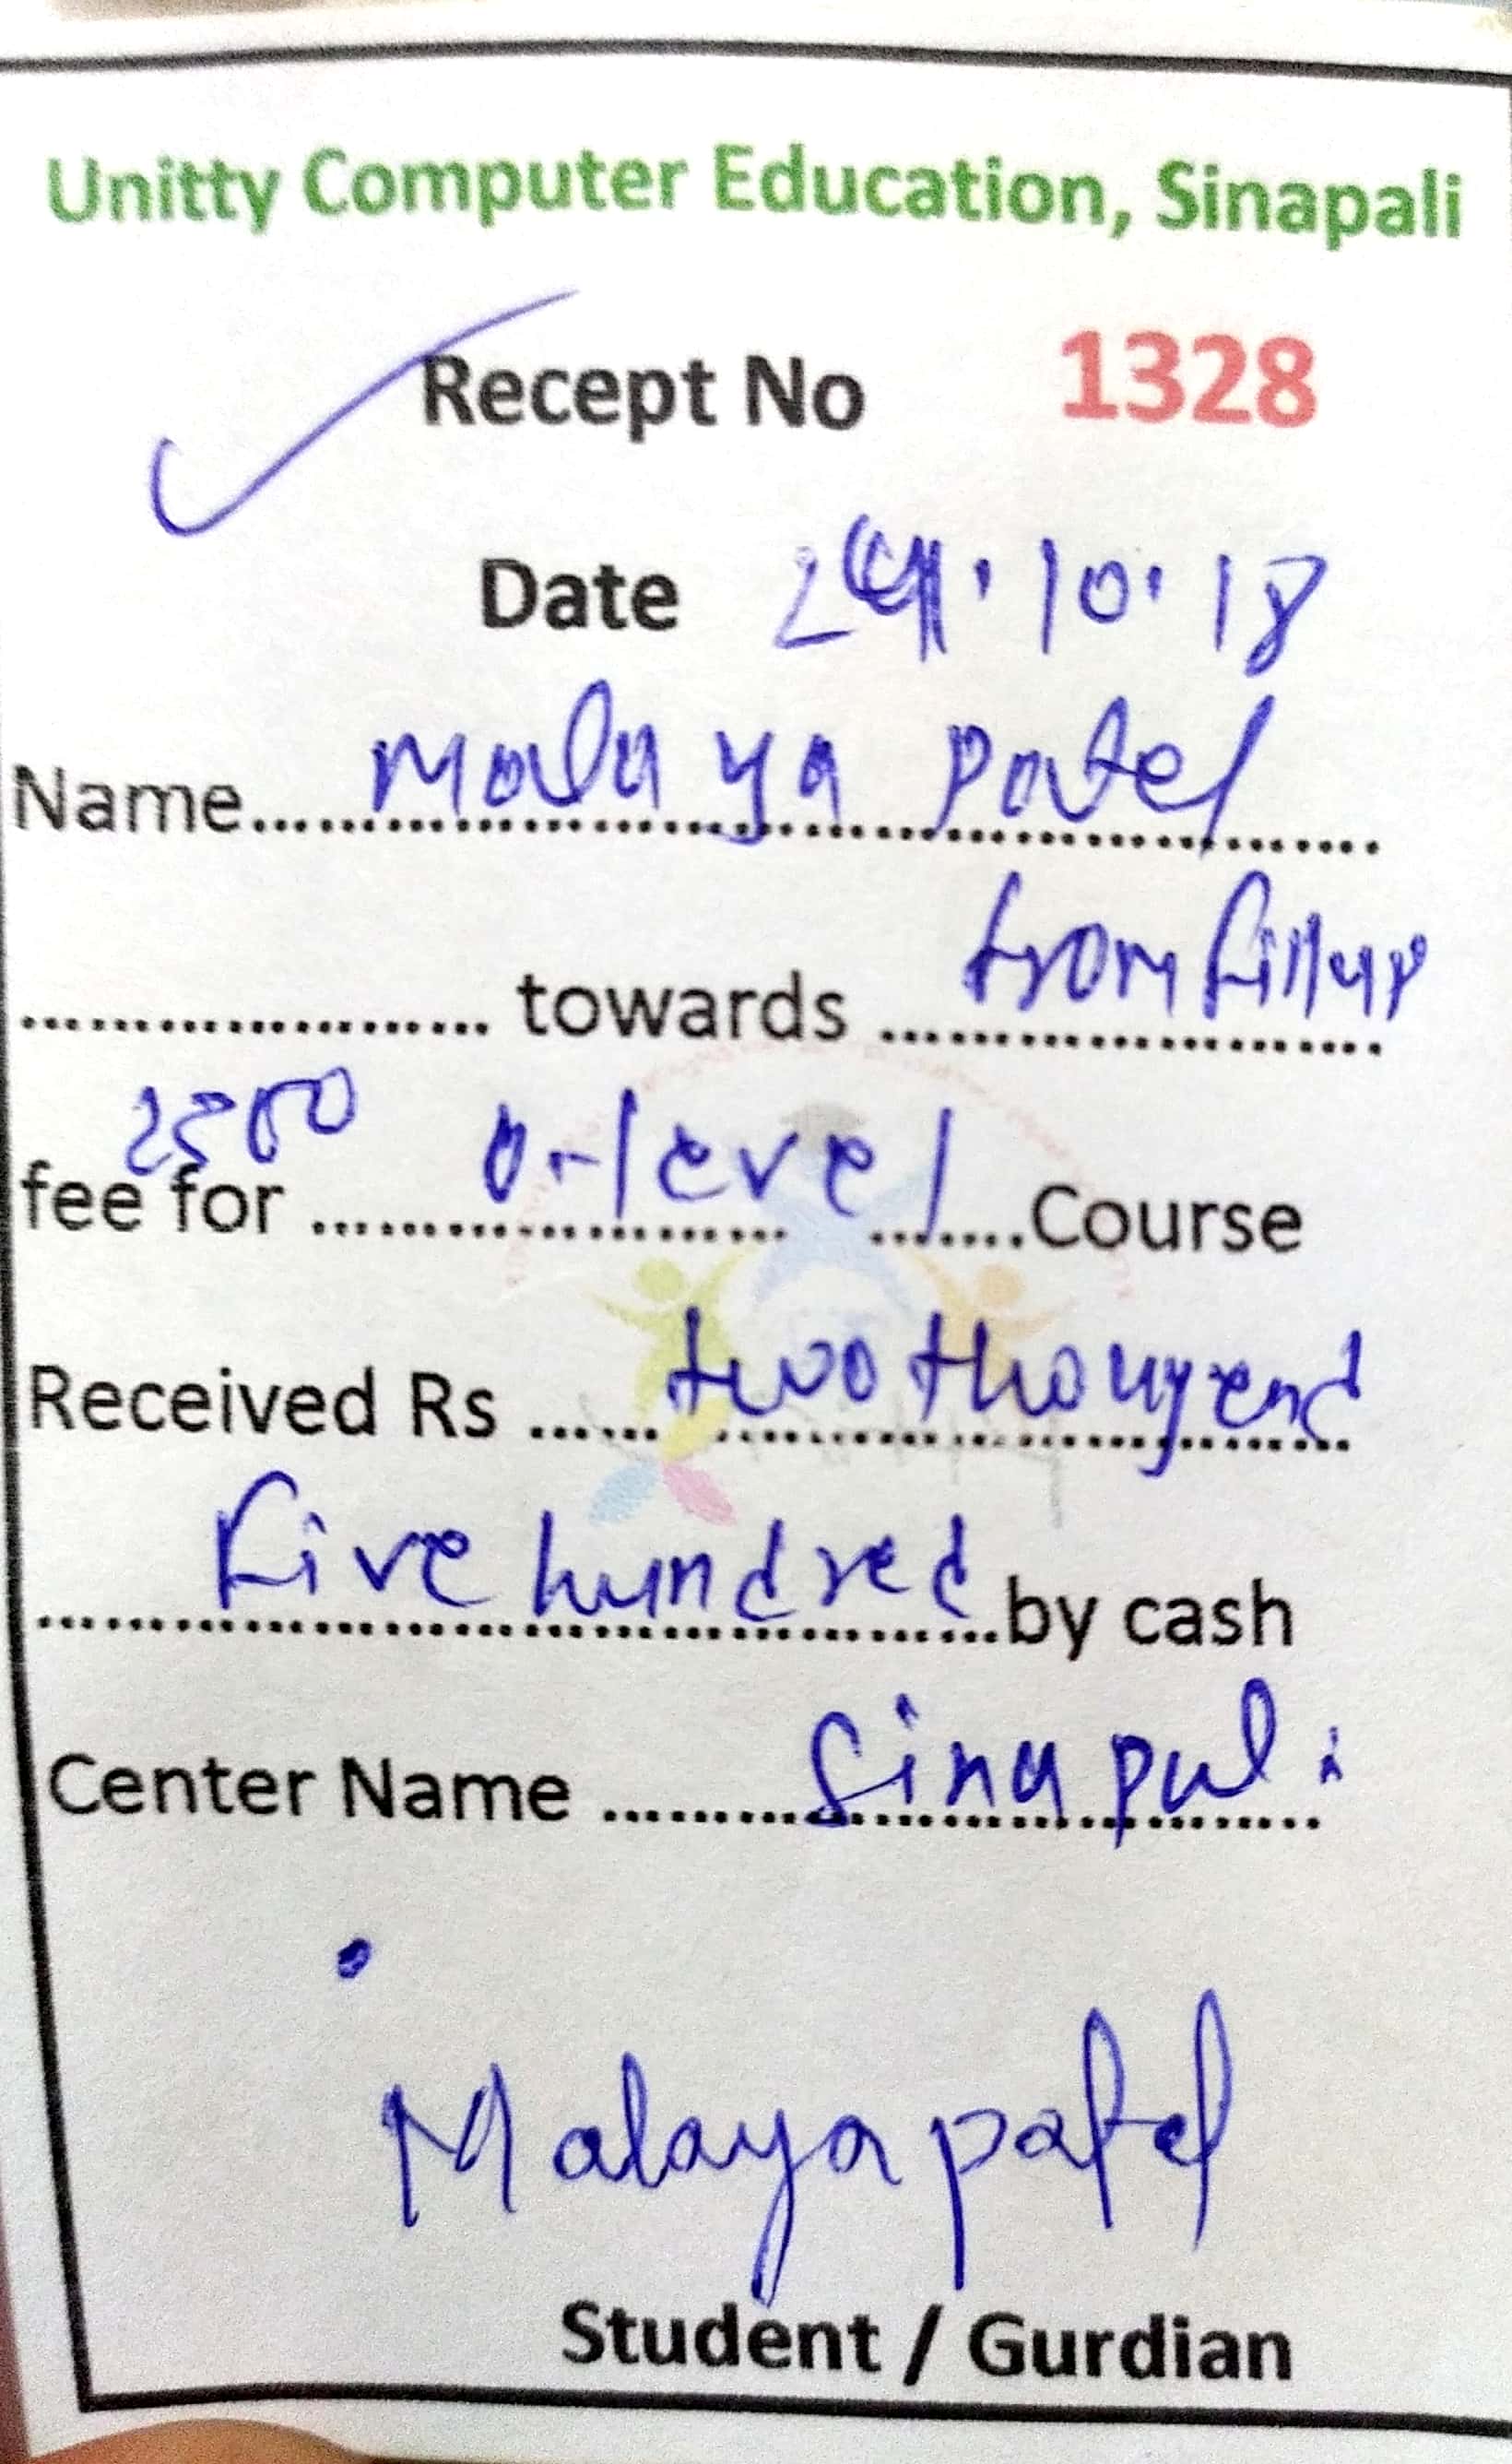 Unitty Computer Education, Sinapali
Recept No 1328
Date 10.18
Name Malaya patel
towards from fillup
2500
fee for O-level Course
Received Rs two thousend
five hundred by cash
Center Name Sinapali
Malaya patel
Student / Gurdian